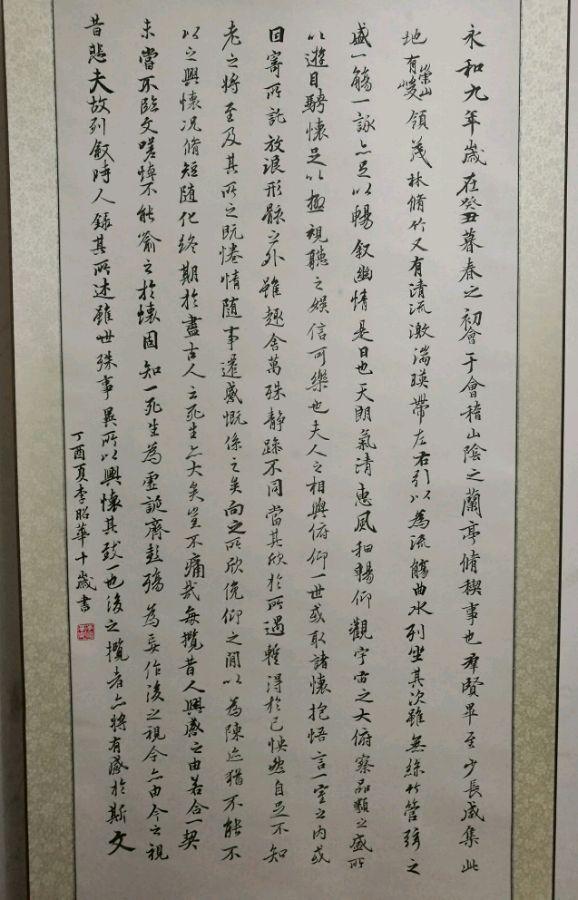 永和九年歲在癸丑暮春之初會于會稽山陰之蘭亭脩禊事也羣賢畢至少長咸集此
地有崇山峻領茂林脩竹又有清流激湍暎帶左右引以為流觴曲水列坐其次雖無絲竹管弦之
盛一觴一詠亦足以暢叙幽情是日也天朗氣清惠風和暢仰觀宇宙之大俯察品類之盛所
以遊目騁懷足以極視聽之娛信可樂也夫人之相與俯仰一世或取諸懷抱悟言一室之內或
因寄所託放浪形骸之外雖趣舍萬殊静躁不同當其欣於所遇暫得於己怏然自足不知
老之將至及其所之既惓情隨事遷感慨係之矣向之所欣俛仰之閒以為陳迹猶不能不
以之興懷況脩短隨化終期於盡古人云死生亦大矣豈不痛哉每攬昔人興感之由若合一契
未嘗不臨文嗟悼不能喻之於懷固知一死生為虛誕齊彭殤為妄作後之視今亦由今之視
昔悲夫故列叙時人錄其所述雖世殊事異所以興懷其致一也後之攬者亦將有感於斯文
丁酉夏李昭華十歲書